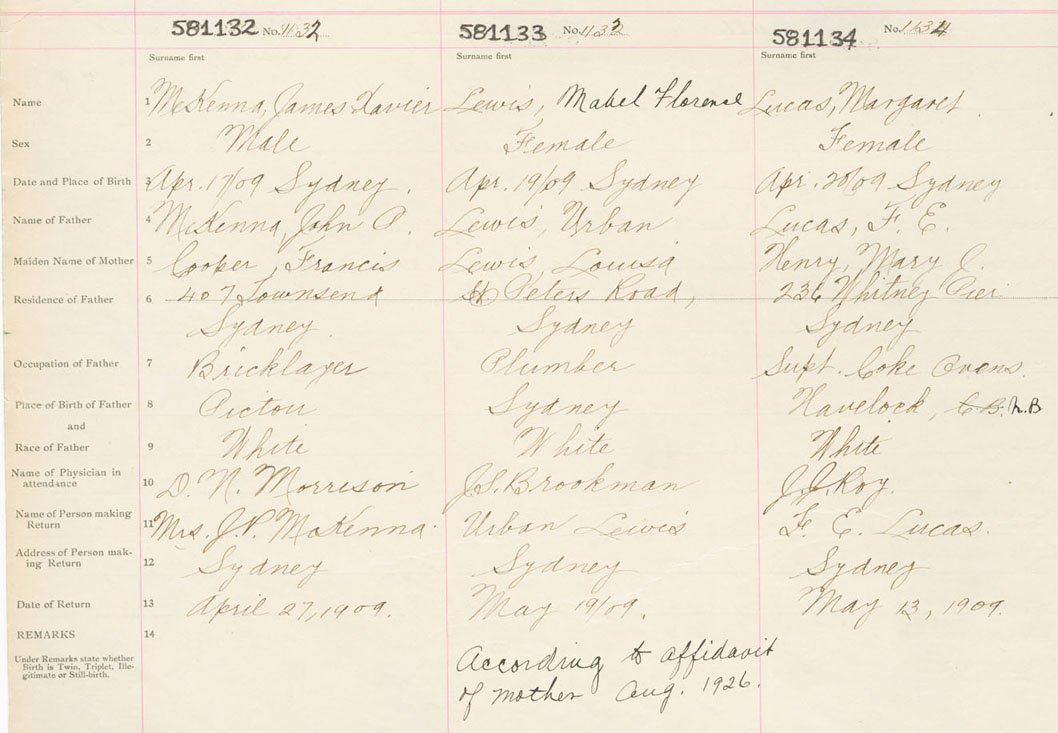 581132 No. 1132 581133 No. 1133 581134 No. 1134
Surname first Surname first Surname first
Name 1 McKenna, James Xavier Lewis, Mabel Florence Lucas, Margaret
Sex 2 Male Female Female
Date and Place of Birth 3 Apr. 17/09 Sydney. Apr. 19/09 Sydney Apr. 20/09 Sydney
Name of Father 4 McKenna, John P. Lewis, Urban Lucas, F. E.
Maiden Name of Mother 5 Cooper, Francis Lewis, Louisa Henry, Mary J.
Residence of Father 6 407 Townsend St Peters Road, 236 Whitney Pier
Sydney. Sydney Sydney
Occupation of Father 7 Bricklayer Plumber Supt. Coke Ovens.
Place of Birth of Father 8 Pictou Sydney Havelock, C.B. N.B
and
Race of Father 9 White White White
Name of Physician in
attendance 10 D. N. Morrison J.S. Brookman J.J. Roy.
Name of Person making
Return 11 Mrs. J.P. McKenna. Urban Lewis F. E. Lucas.
Address of Person mak-
ing Return 12 Sydney Sydney Sydney
Date of Return 13 April 27, 1909. May 19/09. May 13, 1909.
REMARKS 14
Under Remarks state whether
Birth is Twin, Triplet, Ille-
gitimate or Still-birth.
According to affidavit
of mother Aug. 1926.